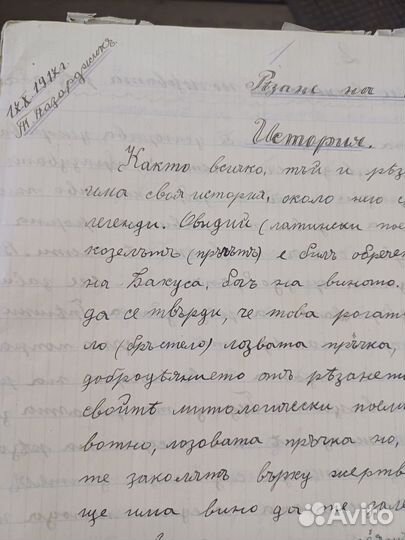 17.X.1917г.
Т. Пазарджикъ
Рѣзане на
История.
Както всичко, тъй и рѣз
има своя история, около него с
легенди. Овидий (латински пое
козелътъ (пръчътъ) е билъ обрече
на Бакуса, богъ на виното,
да се твърди, че това рогат
ло (бръстело) лозвата пръчка,
добродѣянието отъ рѣзанет
своитѣ митологически поеми
вотно, лозовата пръчка но,
те заколятъ върху жертв
ще има вино да те залѣ
Avito